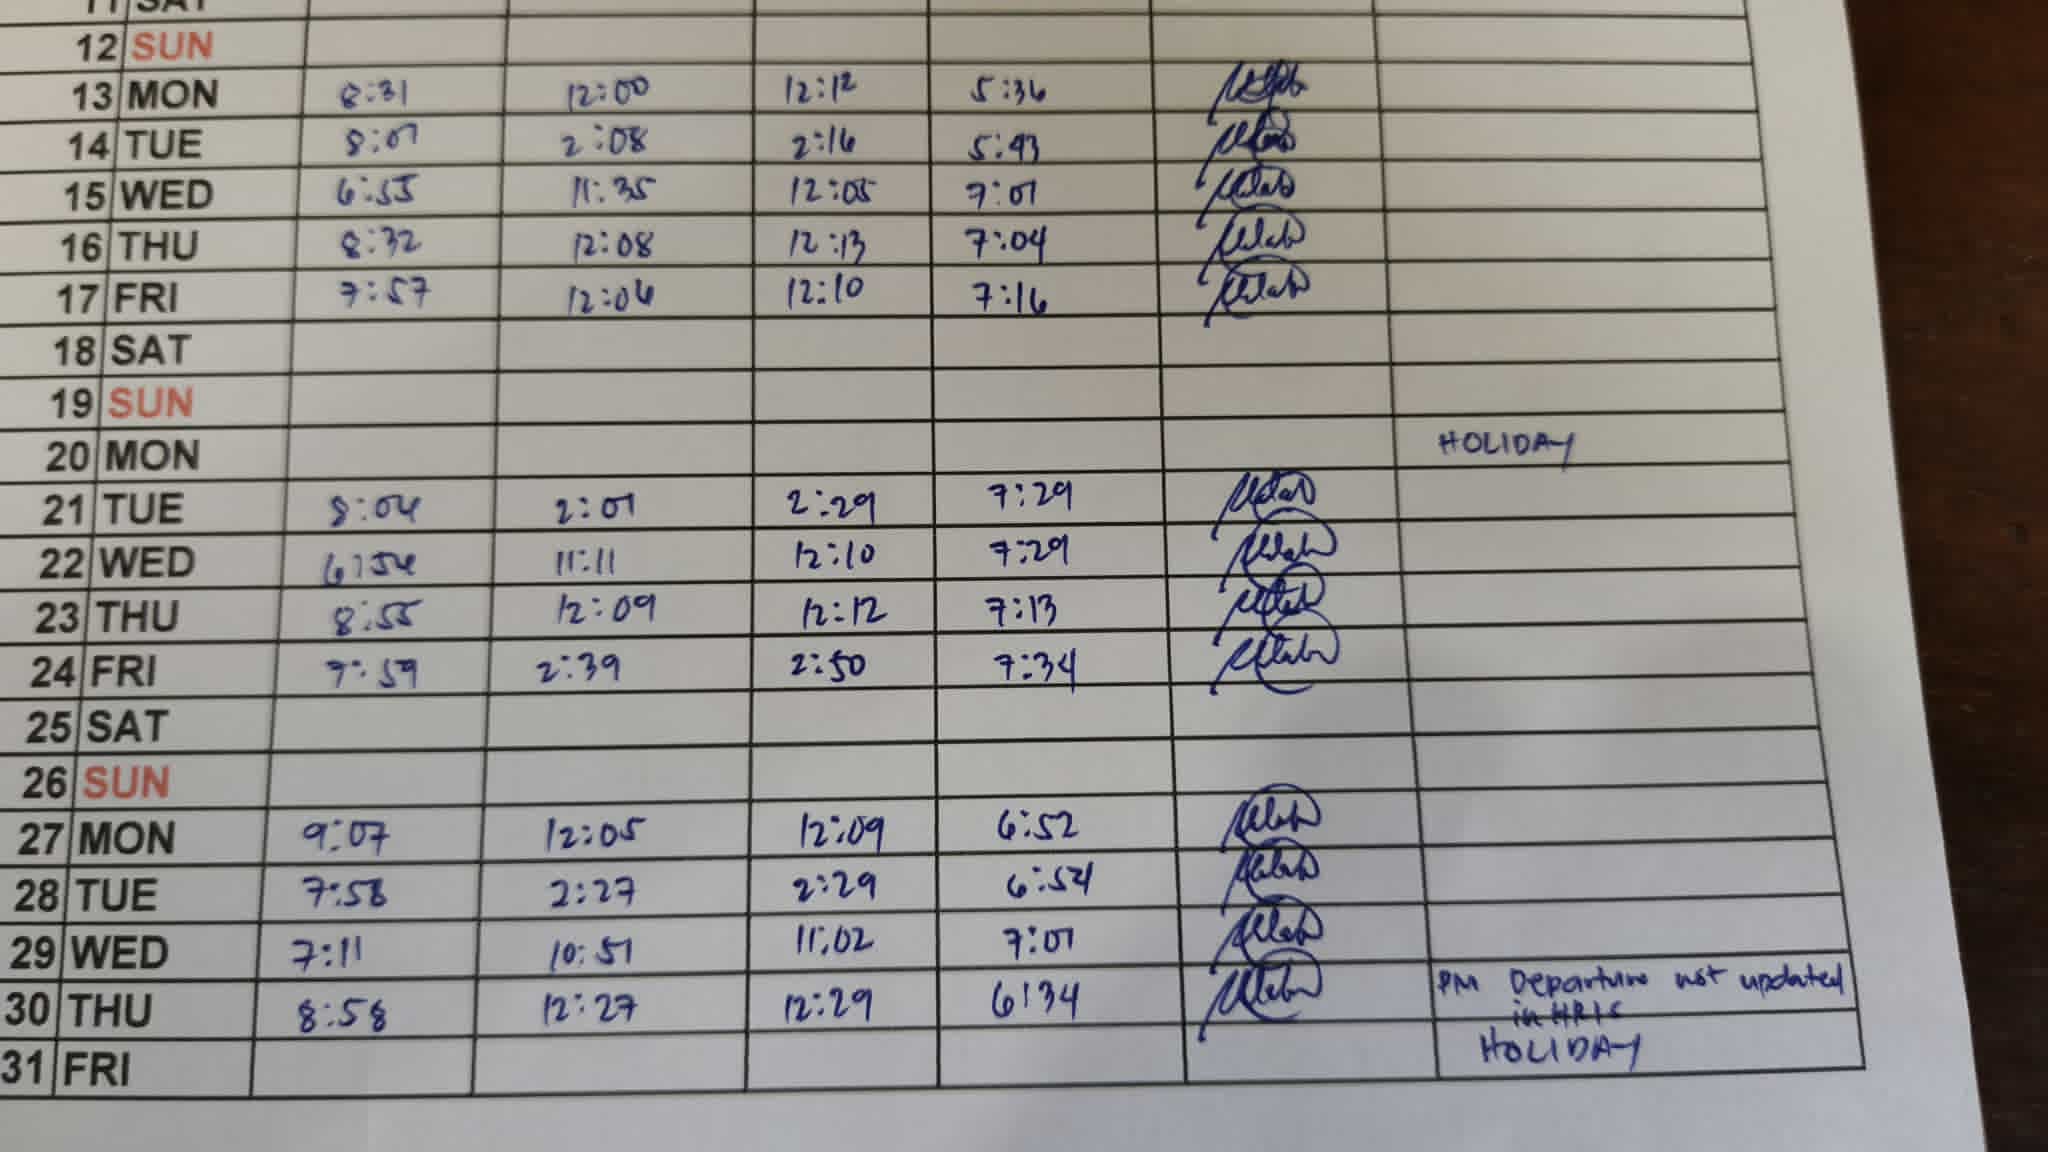 11 SAT
12 SUN
13 MON 8:31 12:00 12:12 5:36
14 TUE 8:01 2:08 2:16 5:43
15 WED 6:55 11:35 12:05 7:01
16 THU 8:32 12:08 12:13 7:04
17 FRI 7:57 12:06 12:10 7:16
18 SAT
19 SUN
20 MON HOLIDAY
21 TUE 8:04 2:01 2:29 7:29
22 WED 6:54 11:11 12:10 7:29
23 THU 8:55 12:09 12:12 7:13
24 FRI 7:59 2:39 2:50 7:34
25 SAT
26 SUN
27 MON 9:07 12:05 12:09 6:52
28 TUE 7:58 2:27 2:29 6:54
29 WED 7:11 10:51 11:02 7:01
30 THU 8:58 12:27 12:29 6:34 PM Departure not updated
in HRIS
31 FRI HOLIDAY